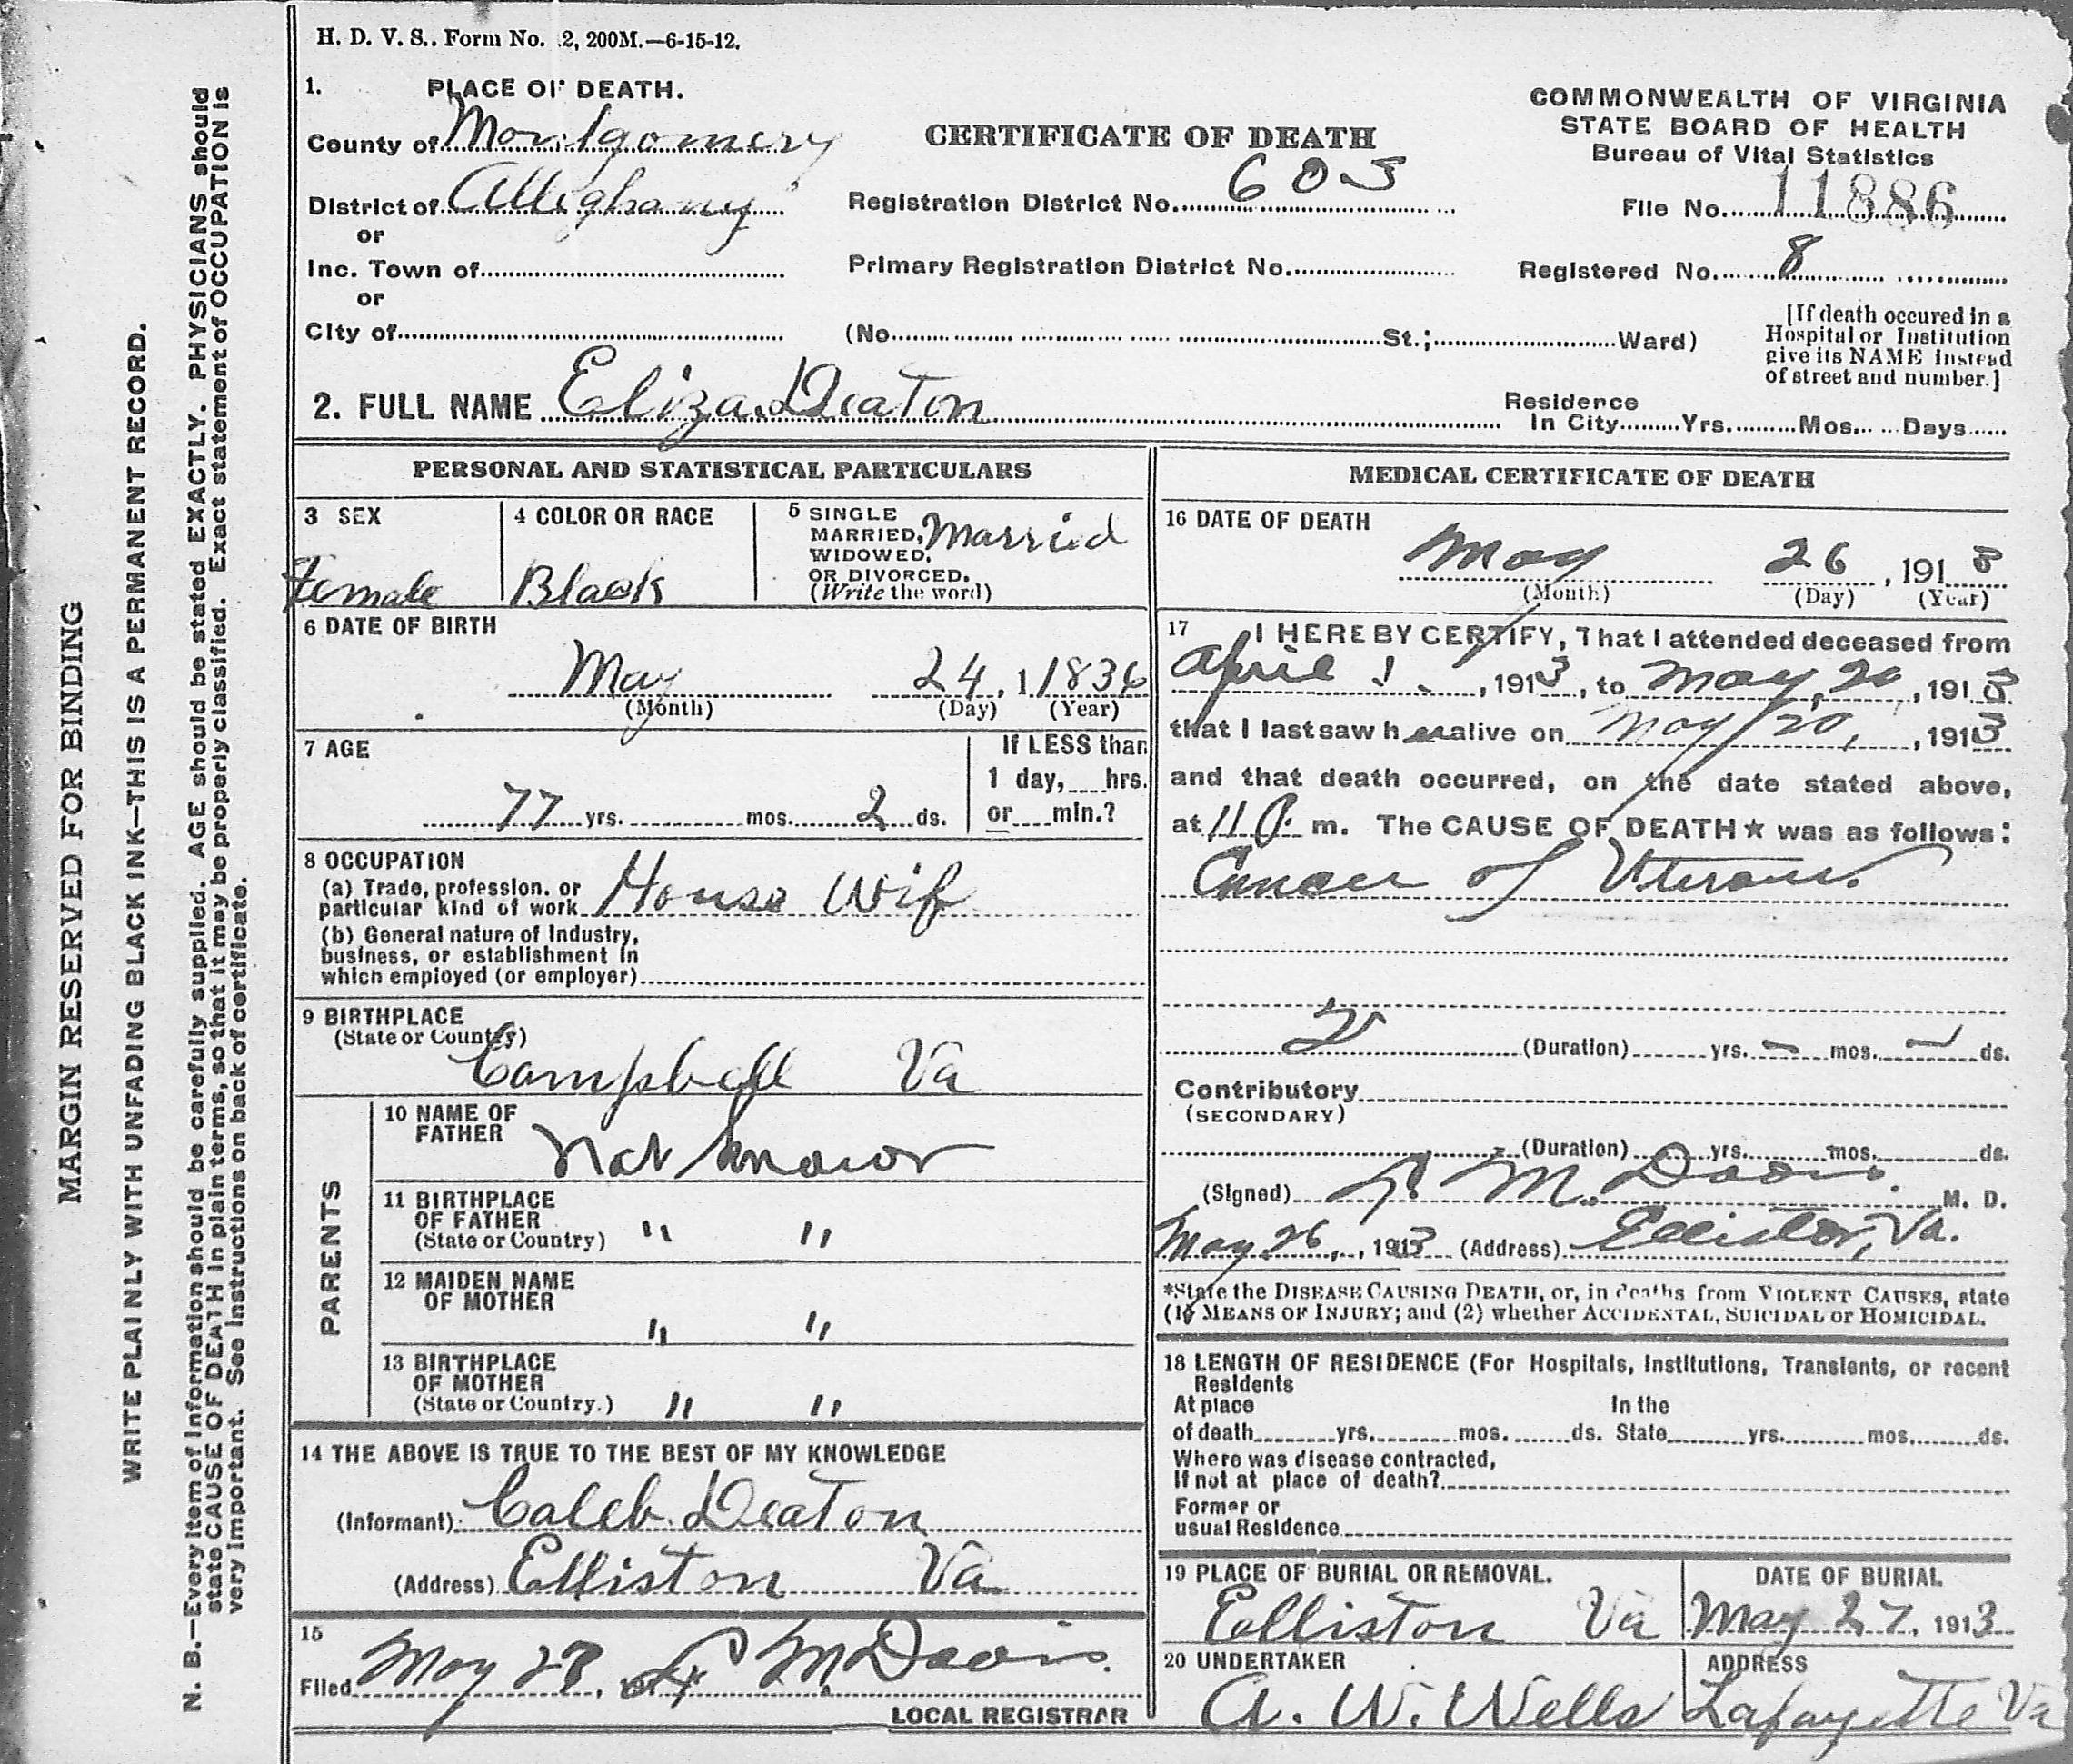 H. D. V. S.. Form No. 12, 200M.—6-15-12.
1. PLACE OF DEATH.
County of Montgomery
District of Alleghany
or
Inc. Town of
or
City of
CERTIFICATE OF DEATH
Registration District No. 603
Primary Registration District No.
(No. St.; Ward)
COMMONWEALTH OF VIRGINIA
STATE BOARD OF HEALTH
Bureau of Vital Statistics
File No. 11886
Registered No. 8
[If death occured in a
Hospital or Institution
give its NAME instead
of street and number.]
2. FULL NAME Eliza Deaton
Residence
In City Yrs. Mos. Days
PERSONAL AND STATISTICAL PARTICULARS
3 SEX
Female
4 COLOR OR RACE
Black
5 SINGLE
MARRIED, Married
WIDOWED,
OR DIVORCED.
(Write the word)
6 DATE OF BIRTH
May 24, 1 1836
(Month) (Day) (Year)
7 AGE
77 yrs. mos. 2 ds.
If LESS than
1 day, hrs.
or min.?
8 OCCUPATION
(a) Trade, profession. or
particular kind of work House Wif
(b) General nature of Industry,
business, or establishment in
which employed (or employer)
9 BIRTHPLACE
(State or Country)
Campbell Va
PARENTS
10 NAME OF
FATHER
Not know
11 BIRTHPLACE
OF FATHER
(State or Country) " "
12 MAIDEN NAME
OF MOTHER
" "
13 BIRTHPLACE
OF MOTHER
(State or Country.) " "
14 THE ABOVE IS TRUE TO THE BEST OF MY KNOWLEDGE
(Informant) Caleb Deaton
(Address) Elliston Va
15
Filed May 27, M Davis.
LOCAL REGISTRAR
MEDICAL CERTIFICATE OF DEATH
16 DATE OF DEATH
May 26, 1913
(Month) (Day) (Year)
17 I HEREBY CERTIFY, That I attended deceased from
April 1, 1913, to May, 20, 1913
that I last saw her alive on May 20, , 1913
and that death occurred, on the date stated above,
at 11 P. m. The CAUSE OF DEATH★ was as follows:
Cancer of Uterous.
2 (Duration) yrs. – mos. – ds.
Contributory
(SECONDARY)
(Duration) yrs. mos. ds.
(Signed) M. Davis. M. D.
May 26, , 1913 (Address) Elliston, Va.
*State the DISEASE CAUSING DEATH, or, in deaths from VIOLENT CAUSES, state
(1) MEANS OF INJURY; and (2) whether ACCIDENTAL, SUICIDAL or HOMICIDAL.
18 LENGTH OF RESIDENCE (For Hospitals, Institutions, Transients, or recent
Residents
At place In the
of death yrs. mos. ds. State yrs. mos. ds.
Where was disease contracted,
If not at place of death?
Former or
usual Residence
19 PLACE OF BURIAL OR REMOVAL.
Elliston Va
DATE OF BURIAL
May 27, 1913
20 UNDERTAKER
A. W. Wells
ADDRESS
Lafayette Va
MARGIN RESERVED FOR BINDING
WRITE PLAINLY WITH UNFADING BLACK INK—THIS IS A PERMANENT RECORD.
N. B.—Every item of information should be carefully supplied. AGE should be stated EXACTLY. PHYSICIANS should
state CAUSE OF DEATH in plain terms, so that it may be properly classified. Exact statement of OCCUPATION is
very important. See instructions on back of certificate.